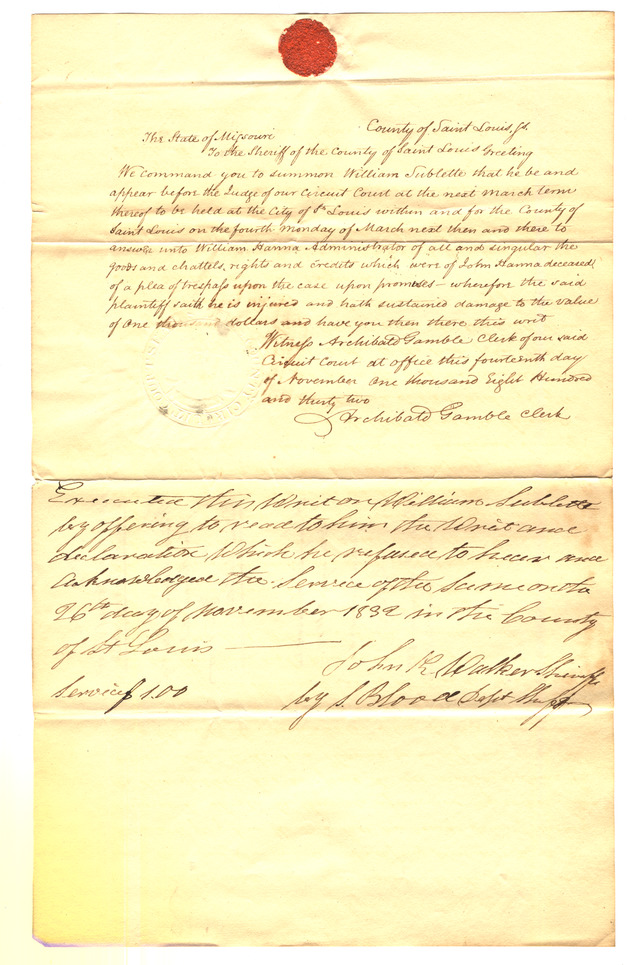 County of Saint Louis, Sct.
The State of Missouri
To the Sheriff of the County of Saint Louis Greeting
We command you to summon William Sublette that he be and
appear before the Judge of our Circuit Court at the next March term
thereof to be held at the City of St Louis within and for the County of
Saint Louis on the fourth Monday of March next then and there to
answer unto William Hanna Administrator of all and singular the
goods and chattels, rights and credits which were of John Hanna deceased
of a plea of trespass upon the case upon promises – wherefore the said
plaintiff saith he is injured and hath sustained damage to the value
of one thousand dollars and have you then there this writ
Witness Archibald Gamble Clerk of our said
Circuit Court at office this fourteenth day
of November one thousand Eight Hundred
and thirty two
Archibald Gamble Clerk
Executed this Writ on William Sublette
by offering to read to him the Writ and
declaration Which he refused to hear and
acknowledged the Service of the same on the
26th day of November 1832 in the County
of St Louis
John K Walker Sheriff
Service $1.00
by S. Blood Dept Shff